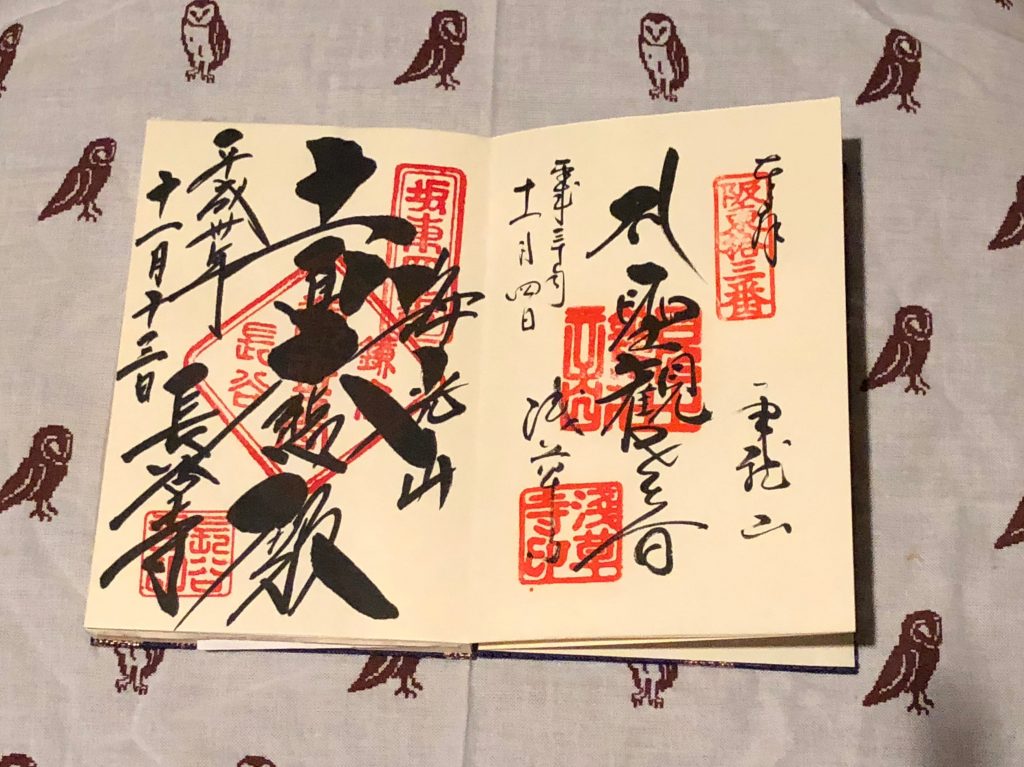 奉拝
阪東拾三番
金龍山
聖観世音
平成三十年
十一月四日
浅草寺
浅草寺印
坂東四番
海光山
鎌倉
長谷
殿
平成卅年
十一月十三日
長谷寺